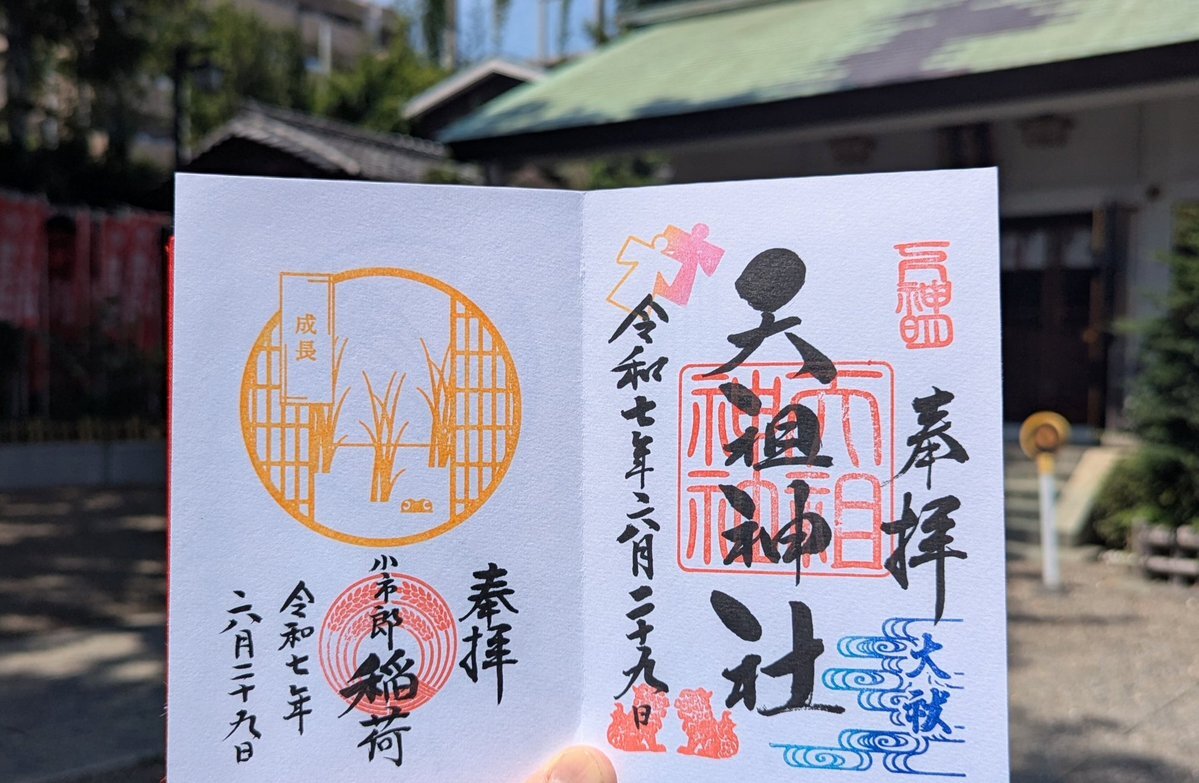 奉拝
天祖神社
天祖
神社
令和七年六月二十九日
大祓
成長
奉拝
小市郎稲荷
令和七年
六月二十九日